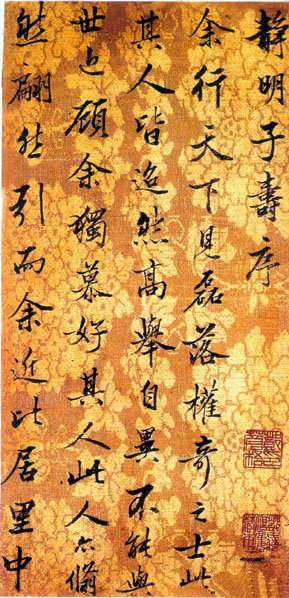 靜明子壽序
余行天下見磊落權奇之士此
其人皆迥然高舉自異不能與
世顧余獨慕好其人此人亦翛
然翩然引而余近比居里中